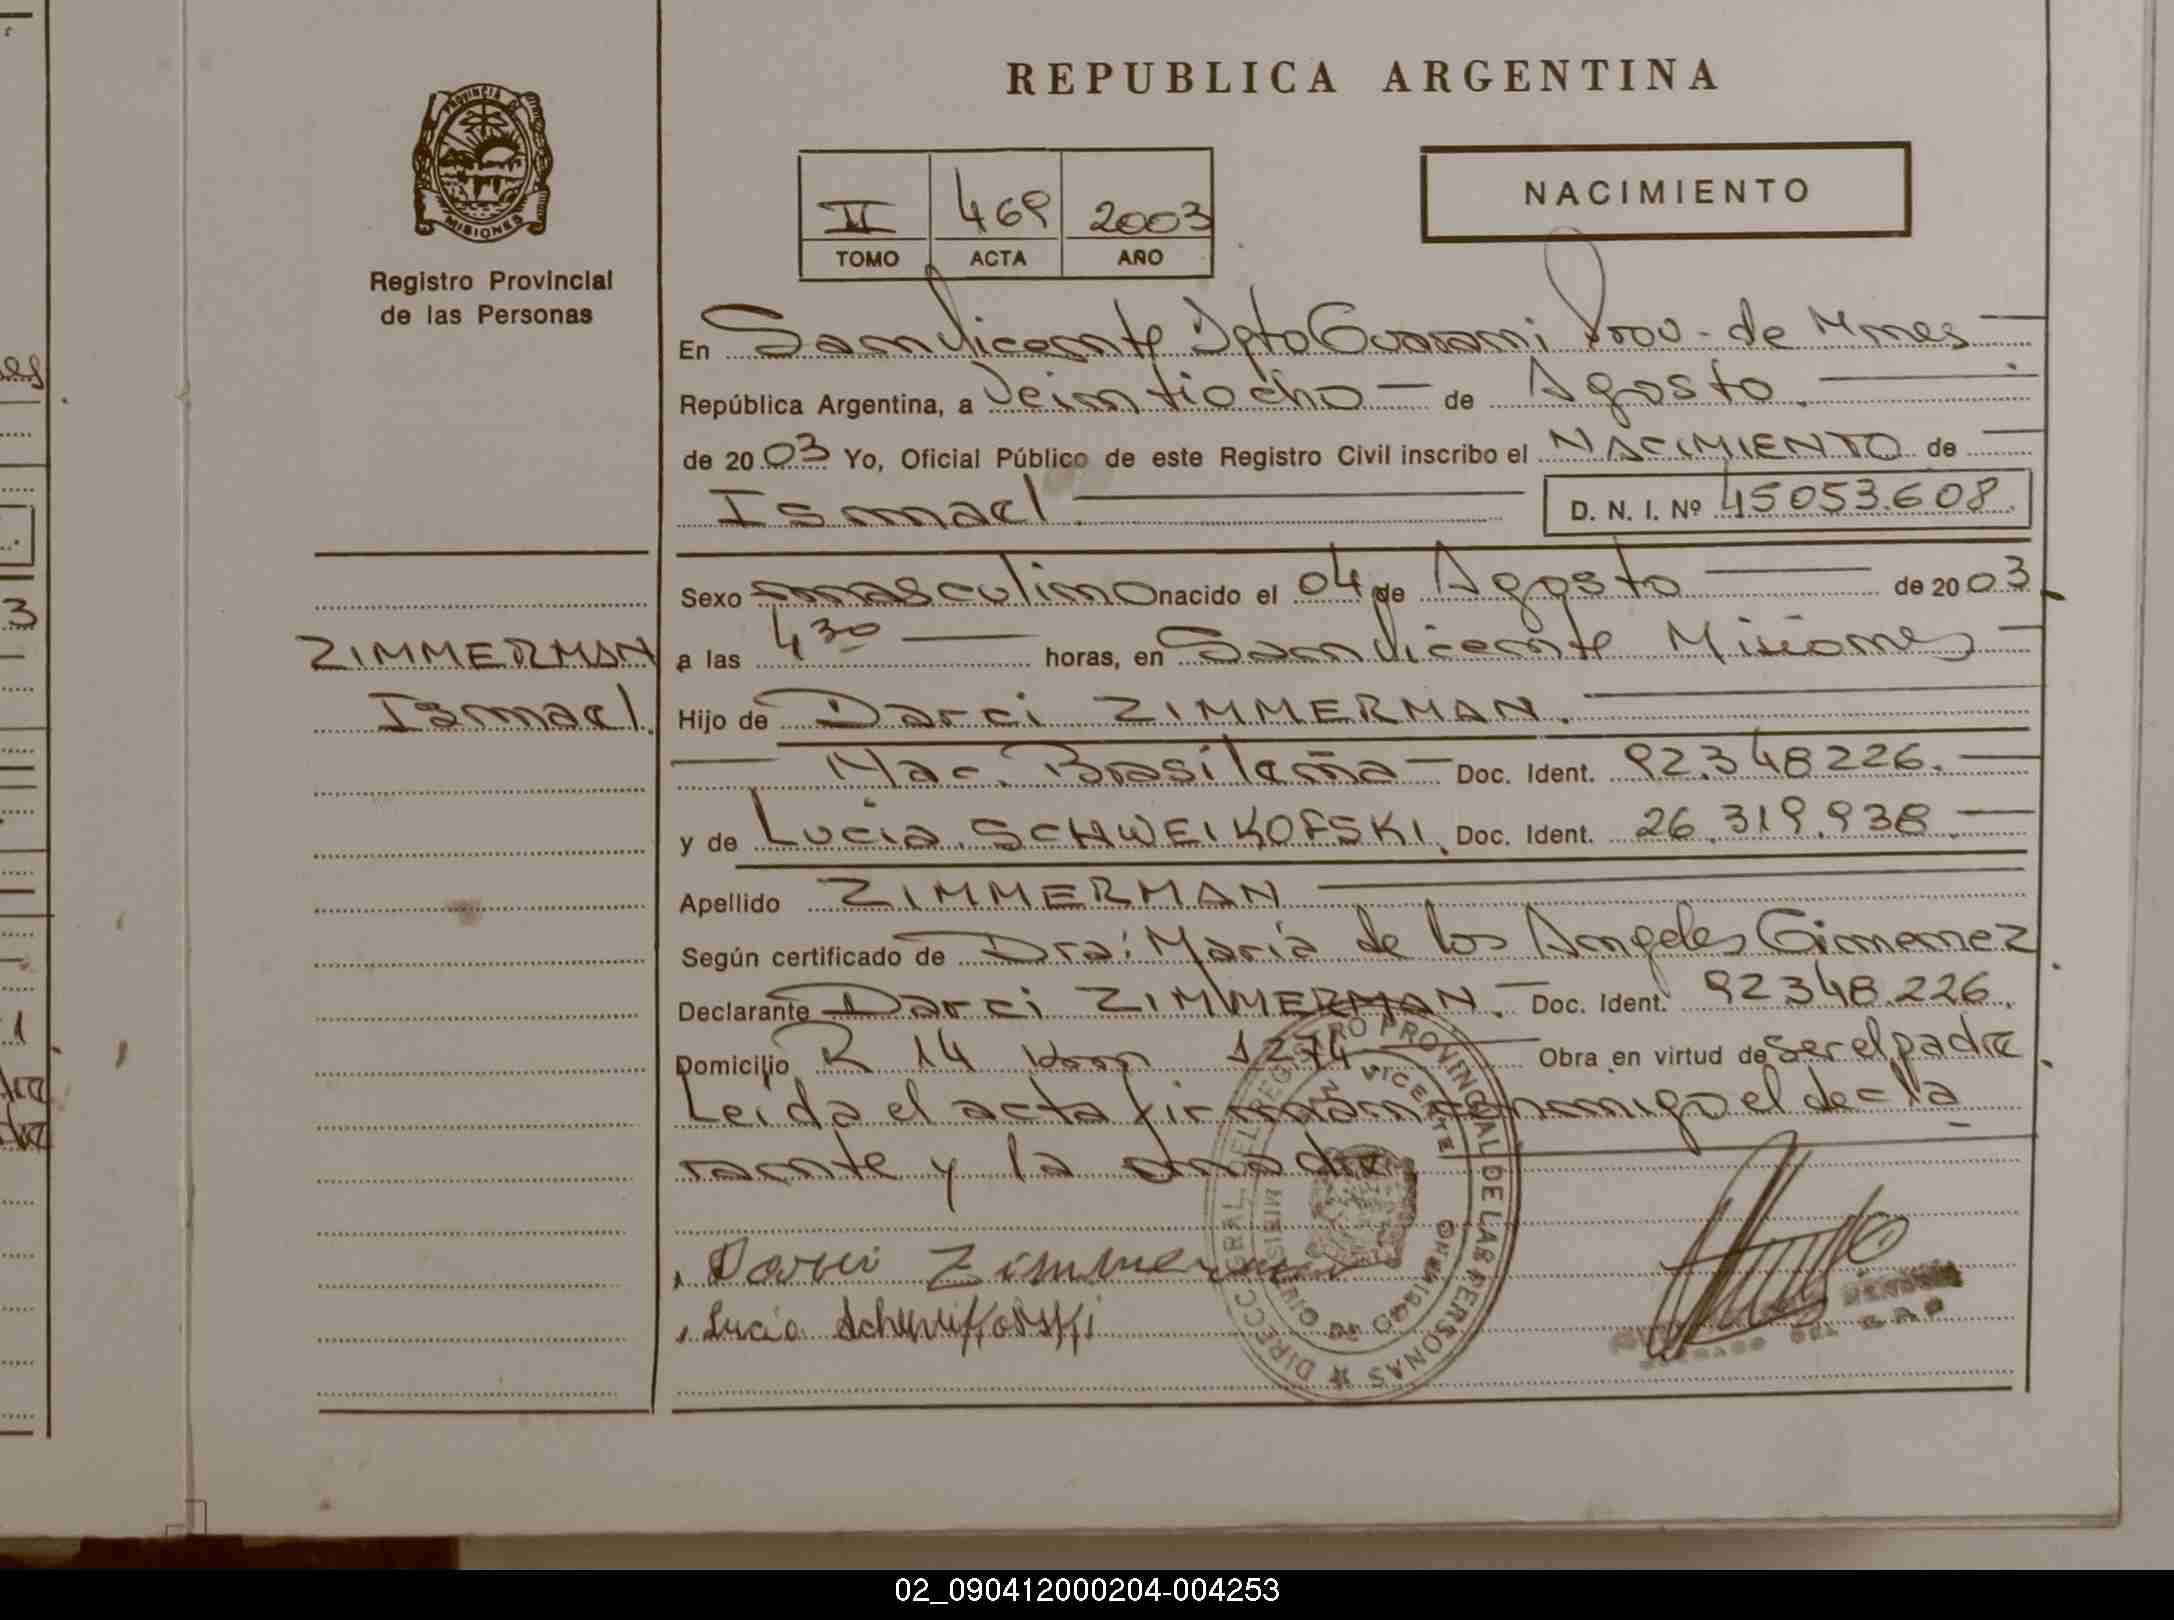 REPUBLICA ARGENTINA
PROVINCIA DE
MISIONES
Registro Provincial
de las Personas
II 469 2003
TOMO ACTA AÑO
NACIMIENTO
En San Vicente Dpto Guarani Prov. de Mnes
República Argentina, a Veintiocho de Agosto.
de 2003 Yo, Oficial Público de este Registro Civil inscribo el NACIMIENTO de
Ismael. D. N. I. Nº 45053.608.
Sexo masculino nacido el 04 de Agosto de 2003
ZIMMERMAN
Ismael.
a las 4 30 horas, en San Vicente Misiones
Hijo de Darci ZIMMERMAN.
Nac. Brasileña Doc. Ident. 92.348226.
y de Lucia SCHWEIKOFSKI. Doc. Ident. 26.319.938.
Apellido ZIMMERMAN
Según certificado de Dra: Maria de los Angeles Gimenez
Declarante Darci ZIMMERMAN. Doc. Ident. 92348.226.
Domicilio R 14 Km 1274 Obra en virtud de ser el padre
Leida el acta firman conmigo el decla
rante y la madre
Darci Zimmerman
Lucia Schweikofski
DIRECC GRAL. DEL REGISTRO PROVINCIAL DE LAS PERSONAS
VICENTE
MISIONES
02_090412000204-004253